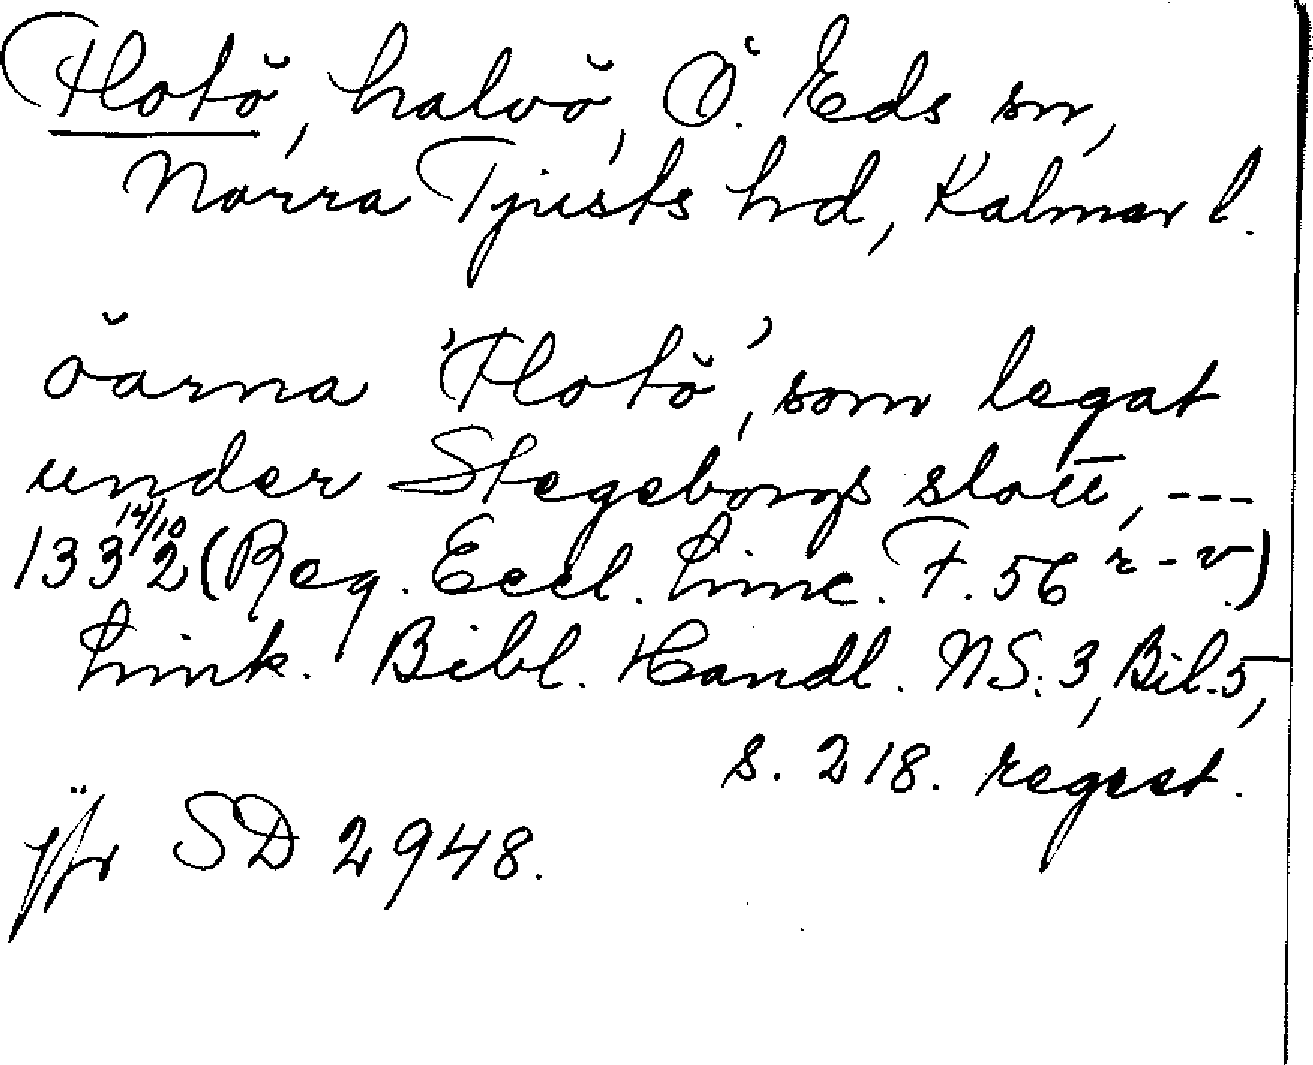 Flotö, halvö, Ö. Eds sn,
Norra Tjusts hd, Kalmar l.
öarna 'Flotö', som legat
under Stegeborgs slott, ---
1332 14/10 (Reg. Eccl. Linc. F. 56 r-v)
Link. Bibl. Handl. NS. 3, Bil. 5,
s. 218. regest.
jfr SD 2948.